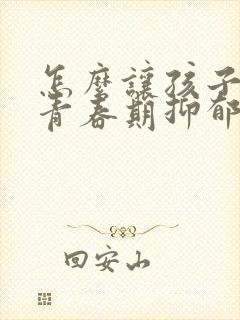 怎麼讓孩子
青春期抑郁
回安山